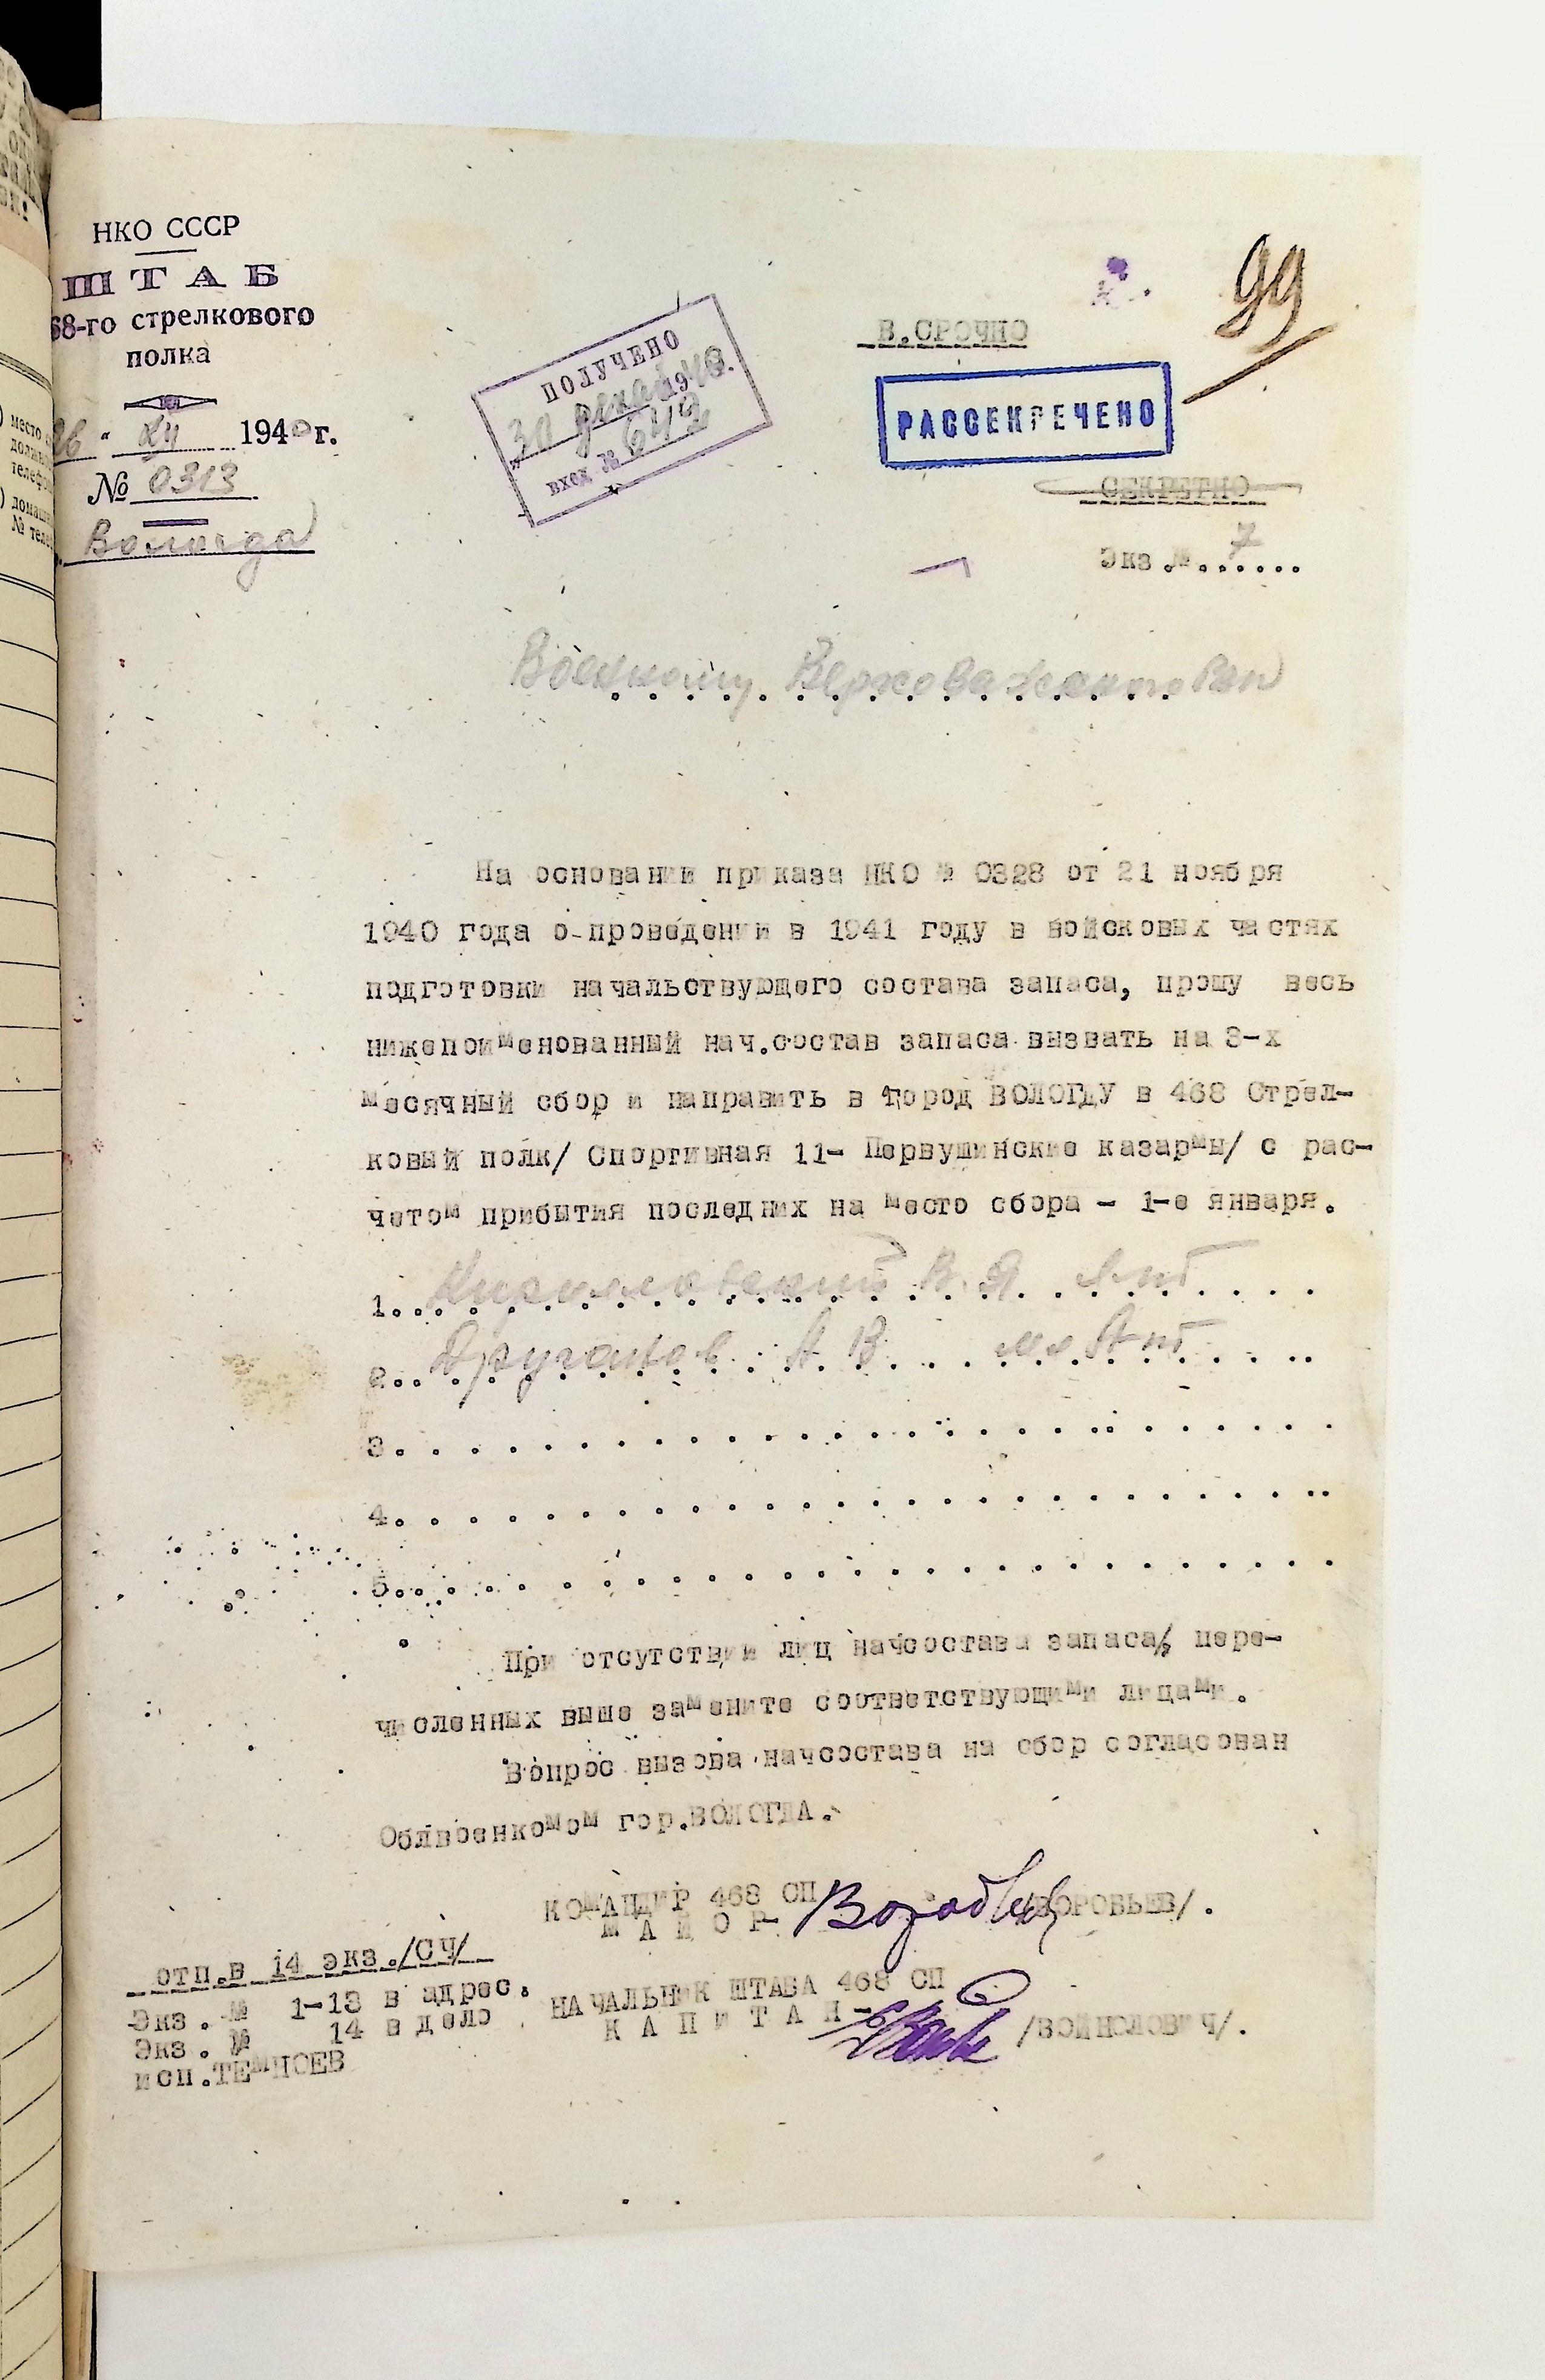 НКО СССР
ШТАБ
68-го стрелкового
полка
26 " XII 1940 г.
№ 0313
Вологда
ПОЛУЧЕНО
"30 декаб 1940.
вход № 649
99
В.СРОЧНО
РАССЕКРЕЧЕНО
СЕКРЕТНО
Экз.№ 7......
Верховажского
На основании приказа НКО № 0328 от 21 ноября
1940 года о-проведении в 1941 году в войсковых частях
подготовки начальствующего состава запаса, прошу весь
нижепоименованный нач.состав запаса вызвать на 3-х
месячный сбор и направить в город ВОЛОГДУ в 468 Стрел-
ковый полк/ Спортивная 11- Первушинские казармы/ с рас-
четом прибытия последних на место сбора - 1-е января.
1. Кирилловский В. Я.
2. Друганов А В мл
3.
4.
5.
При отсутствии лиц начсостава запаса, пере-
численных выше замените соответствующими лицами.
Вопрос вызова начсостава на сбор согласован
Облвоенкомом гор.ВОЛОГДА.
КОМАНДИР 468 СП
МАЙОР- Воробьев /ВОРОБЬЕВ/.
НАЧАЛЬНИК ШТАБА 468 СП
КАПИТАН- /ВОЙНОЛОВИЧ/.
отп.в 14 экз./СЧ/
Экз. № 1-13 в адрес.
Экз. № 14 в дело
исп.ТЕМНОЕВ
место
телеф
№ теле